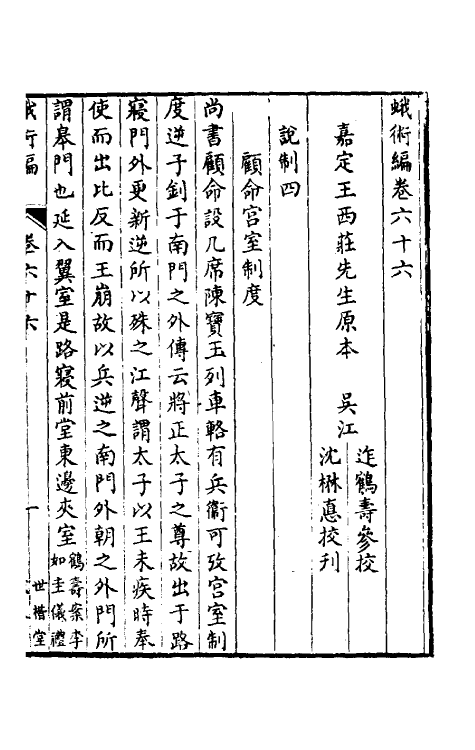 蛾術編卷六十六
嘉定王西莊先生原本 吳江
迮鶴壽參校
沈楙悳校刊
說制四
顧命宮室制度
尚書顧命設几席陳寶玉列車輅有兵衞可攷宮室制
度逆子釗于南門之外傳云將正太子之尊故出于路
寢門外更新逆所以殊之江聲謂太子以王未疾時奉
使而出比反而王崩故以兵逆之南門外朝之外門所
謂皋門也延入翼室是路寢前堂東邊夾室
鶴壽案李
如圭儀禮
蛾術編 卷六十六 一
世楷堂